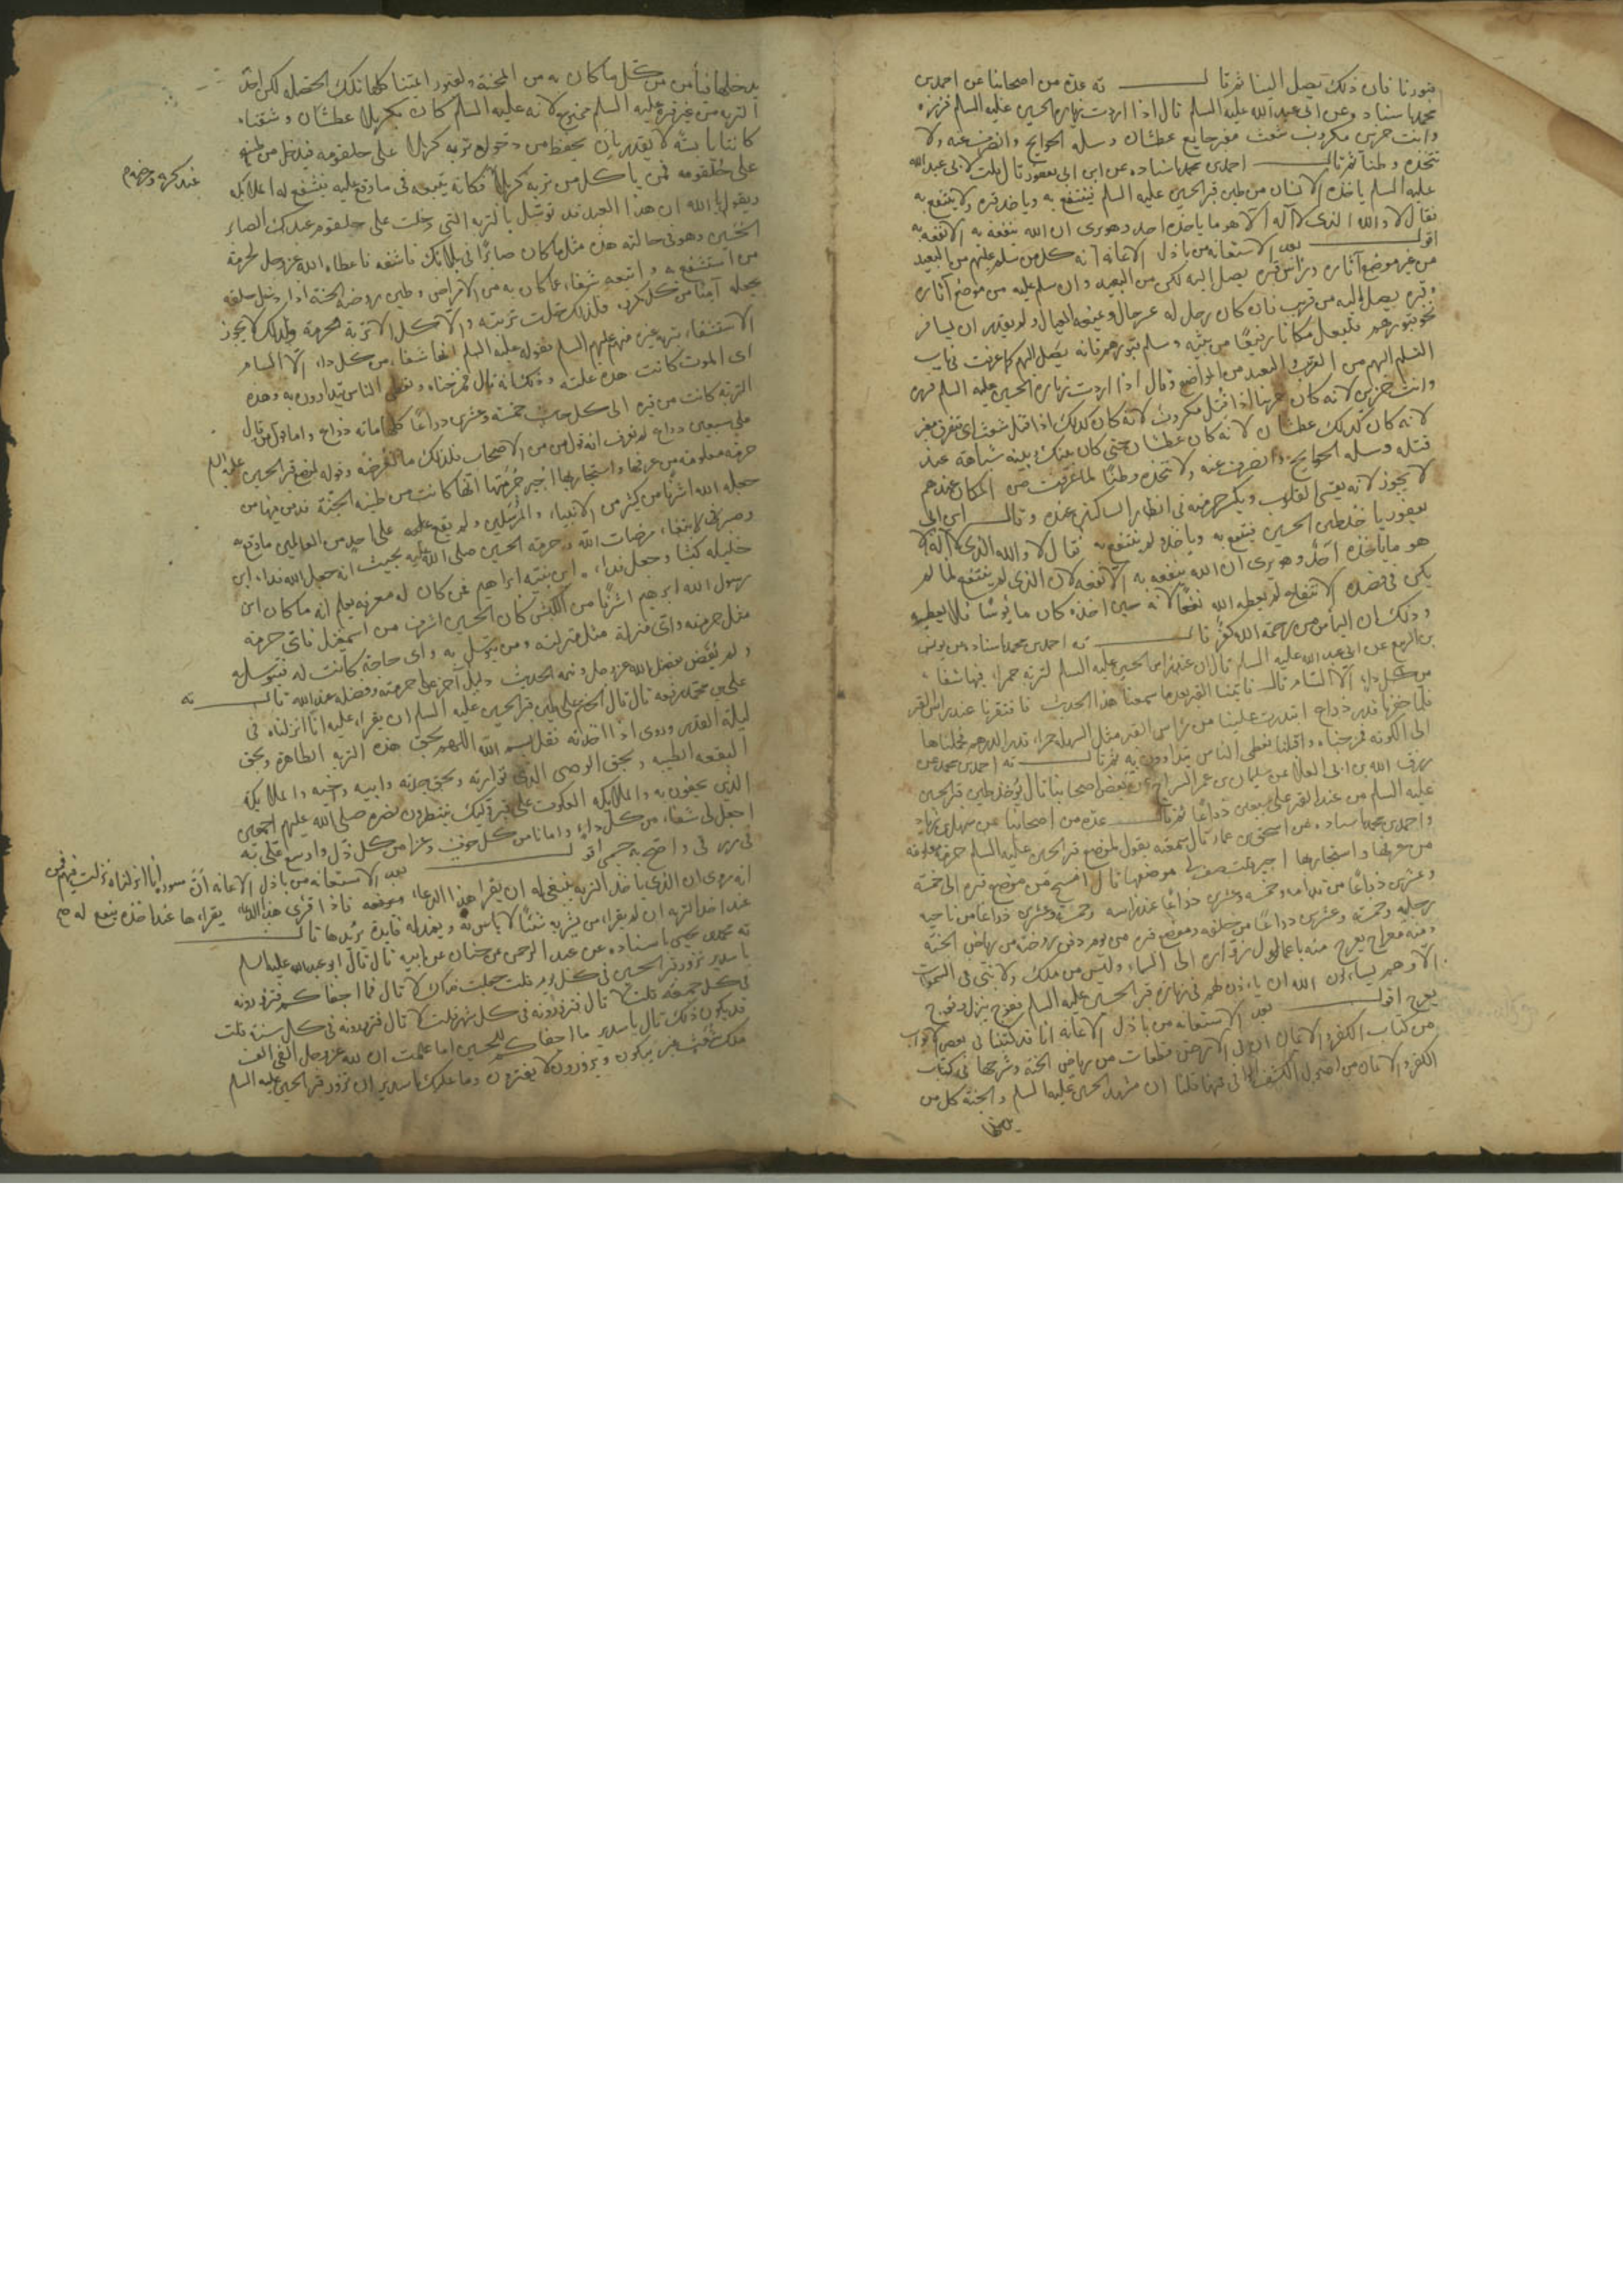 قبورنا فان ذلك يصل الينا ثم قال ته عدة من اصحابنا عن احمد بن
محمد باسناده وعن ابى عبد الله عليه السلم قال اذا اردت زيارة الحسين عليه السلم فزره
وانت حزين مكروب شعث مغبر جايع عطشان وسله الحوايج وانصرف عنه ولا
تتخذه وطنا ثم قال احمد بن محمد باسناده عن ابن ابى يعفور قال قلت لابى عبد الله
عليه السلم ياخذ الانسان من طين قبر الحسين عليه السلم فينتفع به وياخذ غيره ولا ينتفع به
فقال لا والله الذى لا اله الا هو ما ياخذه احد وهو يرى ان الله ينفعه به الا نفعه به
اقول بعد الاستعانه من باذل الاعانة انه كل من سلم عليهم من البعيد
من غير موضع آثاره وراس قبره يصل اليه لكن من البعيد وان سلم عليه من موضع آثاره
وقبره يصل اليه من قريب فان كان رجل له عيال ولم يقدر ان يسافر
نحو قبورهم فليعل مكانا رفيعا من بيته وسلم قبورهم فانه يصل اليهم كما عرفت فى باب
التسلم اليهم من القرب والبعيد من المواضع وقال اذا اردت زيارة الحسين عليه السلم فزره
وانت حزين لانه كان حزينا اذا قتل مكروب لانه كان كذلك اذا قتل شعث اى متفرق مغبر
لانه كان كذلك عطشان لانه كان عطشان حتى كان
قتله وسله الحوايج وانصرف عنه ولا تتخذه وطنا لما عرفت من المكان عندهم
لا يجوز لانه يقسى القلوب وقال ابن ابى
يعفور ياخذ طين الحسين ينتفع به وياخذه ولم ينتفع به فقال لا والله الذى لا اله الا
هو ما ياخذه احد وهو يرى ان الله ينفعه به الا نفعه لان الذى لم ينتفع لما لم
يكن فى قصده الانتفاع لم يعطه الله نفعا لانه حين اخذه كان مايوسا فلا يعطيه
وذلك ان الياس من رحمة الله كفر قال ته احمد بن محمد باسناده عن يونس
بن الربيع عن ابى عبد الله عليه السلم قال ان عند راس الحسين عليه السلم لتربة حمراء فيها شفاء
من كل داء الا السام قال فاتينا القبر بعد ما سمعنا هذا الحديث فاحتفرنا عند راس القبر
فلما حفرنا قدر ذراع ابتدرت علينا من راس القبر مثل السهلة حمراء قدر الدرهم فحملناها
الى الكوفة فمزجناه واقبلنا نعطى الناس يتداوون به ثم قال ته احمد بن محمد عن
رزق الله بن ابى العلا عن سليمان بن عمر السراج عن بعض اصحابنا قال يؤخذ طين قبر الحسين
عليه السلم من عند القبر على سبعين ذراعا ثم قال عدة من اصحابنا عن سهل بن زياد
واحمد بن محمد باسناده عن اسحق بن عمار قال سمعته يقول لموضع قبر الحسين عليه السلم حرمة معلومة
من عرفها واستجار بها اجير قلت صف لى موضعها قال امسح من موضع قبره الى خمسة
وعشرين ذراعا من قدامه وخمسة وعشرين ذراعا عند راسه وخمسة وعشرين ذراعا من ناحية
رجليه وخمسة وعشرين ذراعا من خلفه وموضع قبره من يوم دفن روضة من رياض الجنة
ومنه معراج يعرج منه باعمال زواره الى السماء وليس من ملك ولا نبى فى السموات
الا وهم يسالون الله ان ياذن لهم فى زيارة قبر الحسين عليه السلم ففوج ينزل وفوج
يعرج اقول بعد الاستعانه من باذل الاعانة انا قد كتبنا فى بعض الابواب
من كتاب الكفر والايمان ان فى الارض قطعات من رياض الجنة وشرحها فى كتاب
الكفر والايمان من اصول الكشف الوافى فمنها قلنا ان مرقد الحسين عليه السلم والجنة كل من
يدخلها
يدخلها فيأمن من كل ما كان به من المحنة ولقبور ائمتنا كلها تلك الخصلة لكن اخذ
التربة من غير قبره عليه السلم ممنوع لانه عليه السلم كان بكربلا عطشان وشفتاه
كانتا يابسة لا يقدر بان يحفظ من دخول تربة كربلا على حلقومه فيدخل من
على حلقومه فمن ياكل من تربة كربلا فكانه يتبعه فى ما وقع عليه فيشفع له الملائكة
ويقول يا الله ان هذا العبد قد توسل بالتربة التى دخلت على حلقوم عبدك الصابر
الحسين وهو فى حالته هذه مثل ما كان صابرا فى بلائك فاشفه فاعطاه الله عز وجل لحرمة
من استشفع به واتبعه شفاء عما كان به من الامراض وطين روضة الجنة اذا دخل حلقه
يجعله آمنا من كل مكروه فلذلك حلت تربته والا اكل الاتربة محرمة ولذلك لا يجوز
الاستشفاء بتربة غيره منهم عليهم السلم فقوله عليه السلم انها شفاء من كل داء الا السام
اى الموت كانت هذه علته وذلك انه قال فمزجناه ونعطى الناس يتداوون به وهذه
التربة كانت من قبره الى كل جانب خمسة وعشرين ذراعا كلها مائة ذراع واما قول من قال
على سبعين ذراع لم نعرف انه قول من من الاصحاب فلذلك ما نتعرضه وقوله لموضع قبر الحسين عليه السلم
حرمة معلومة من عرفها واستجار بها اجير حرمتها انها كانت من طينة الجنة
جعله الله اشرفا من كثير من الانبياء والمرسلين ولم يقع على احد من العالمين ما وقع به
وصبر لابتغاء مرضات الله وحرمة الحسين صلى الله عليه بحيث انه جعل الله فداء ابن
خليله كبشا وجعل فداء ابن بنته ابراهيم فمن كان له معرفة يعلم انه ما كان ابن
رسول الله ابرهيم اشرفا من الكبش كان الحسين اشرف من اسمعيل فاى حرمة
مثل حرمته واى منزلة مثل منزلته ومن يتوسل به واى حاجة كانت له فيتوسل به
ولم تقض بفضل الله عز وجل وتمة الحديث دليل آخر على حرمته وفضله عند الله قال ته
على بن محمد رفعه قال قال الختم على طين قبر الحسين عليه السلم ان يقراء عليه انا انزلناه فى
ليلة القدر وروى اذا اخذته فقل بسم الله اللهم بحق هذه التربة الطاهرة وبحق
البقعة الطيبة وبحق الوصى الذى تواريه وبحق جده وابيه وامه واخيه والملائكة
الذين يحفون به والملائكة العكوف على قبر وليك ينتظرون نصره صلى الله عليهم اجمعين
اجعل لى شفاء من كل داء وامانا من كل خوف وعزا من كل ذل واوسع على به
فى رزقى واصح به جسمى اقول بعد الاستعانه من باذل الاعانه ان سورة انا انزلناه نزلت فيهم فمن
انه روى ان الذى ياخذ التربة ينبغى له ان يقرا هذا الدعاء فاذا قرئ هذا الدعاء يقراءها عند اخذه ينفع له صح
عند اخذ التربة ان لم يقراء من يشربه شيئا لا باس به قال
ته محمد بن يحيى باسناده عن عبد الرحمن عن حنان عن ابيه قال قال ابو عبد الله عليه السلم
يا سدير تزور قبر الحسين فى كل يوم قلت جعلت فداك لا قال فما اجفاكم فتزورونه
فى كل جمعة قلت لا قال فتزورونه فى كل شهر قلت لا قال فتزورونه فى كل سنة قلت
قد يكون ذلك قال يا سدير ما اجفاكم للحسين اما علمت ان لله عز وجل الفى الف
ملك شعث غبر يبكون ويزورون لا يفترون وما عليك يا سدير ان تزور قبر الحسين عليه السلم